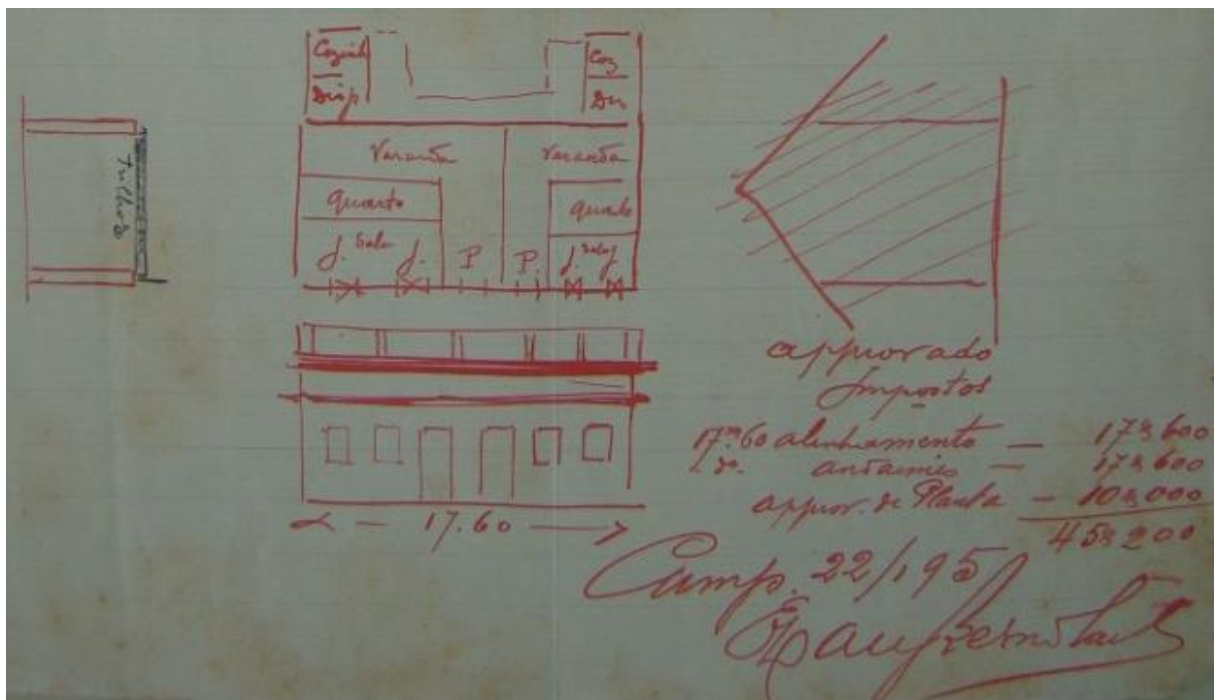 Cozinh
Disp
Coz
Varanda
Varanda
Quarto
Quarto
J. Sala J. P P. J. Sala J.
Trilhos
17.60
approvado
Impostos
17m60 alinhamento — 17$600
andaimes — 17$600
approv. de Planta — 10$000
45$200
Camp. 22/1 95